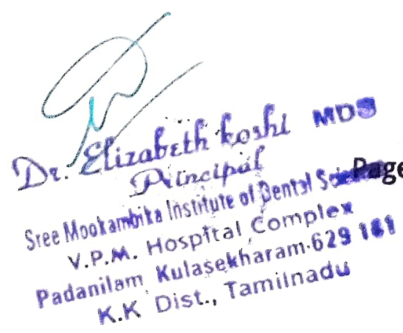 Dr. Elizabeth Koshi MDS
Principal
Sree Mookambika Institute of Dental Page
V.P.M. Hospital Complex
Padanilam Kulasekharam-629 161
K.K Dist., Tamilnadu